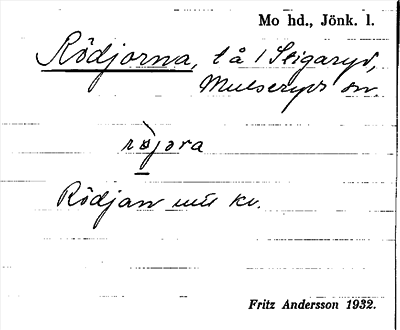 Mo hd., Jönk. l.
Rödjorna, t å / Stigaryd,
Mulseryds sn
rø̀jora
Rödjan utt kv.
Fritz Andersson 1932.